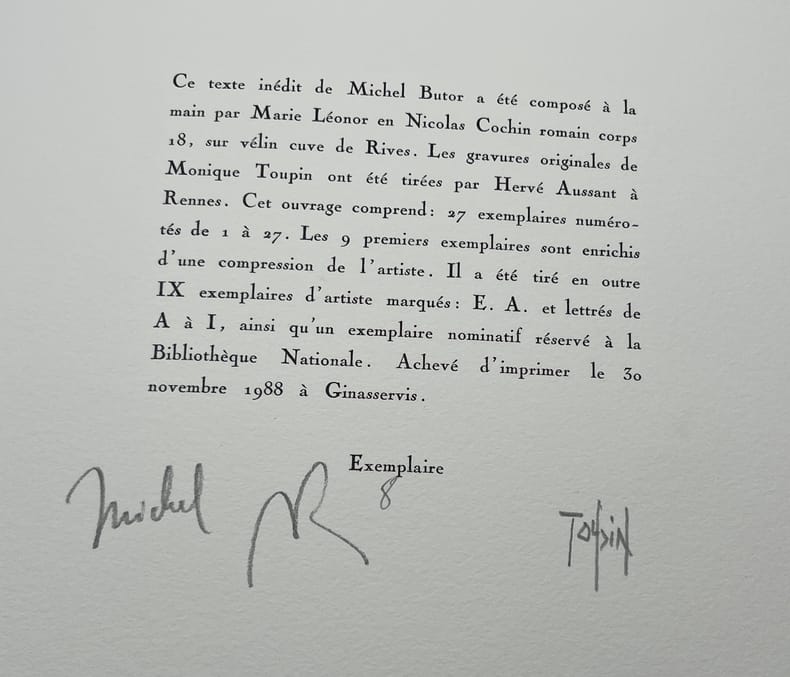 Ce texte inédit de Michel Butor a été composé à la
main par Marie Léonor en Nicolas Cochin romain corps
18, sur vélin cuve de Rives. Les gravures originales de
Monique Toupin ont été tirées par Hervé Aussant à
Rennes. Cet ouvrage comprend: 27 exemplaires numéro-
tés de 1 à 27. Les 9 premiers exemplaires sont enrichis
d'une compression de l'artiste. Il a été tiré en outre
IX exemplaires d'artiste marqués: E. A. et lettrés de
A à I, ainsi qu'un exemplaire nominatif réservé à la
Bibliothèque Nationale. Achevé d'imprimer le 30
novembre 1988 à Ginasservis.
Exemplaire
8
Michel
Toupin